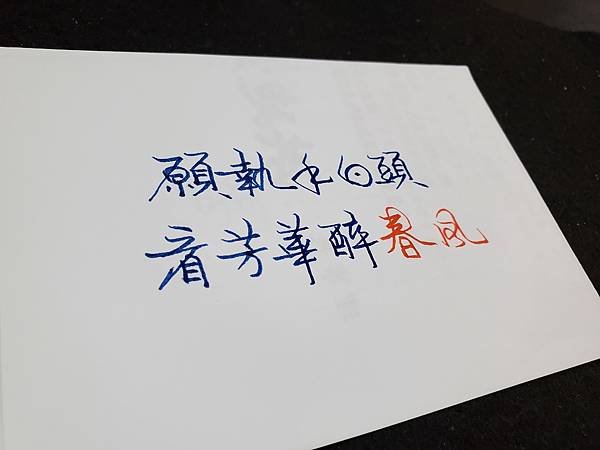 願執手白頭
看芳華醉春風